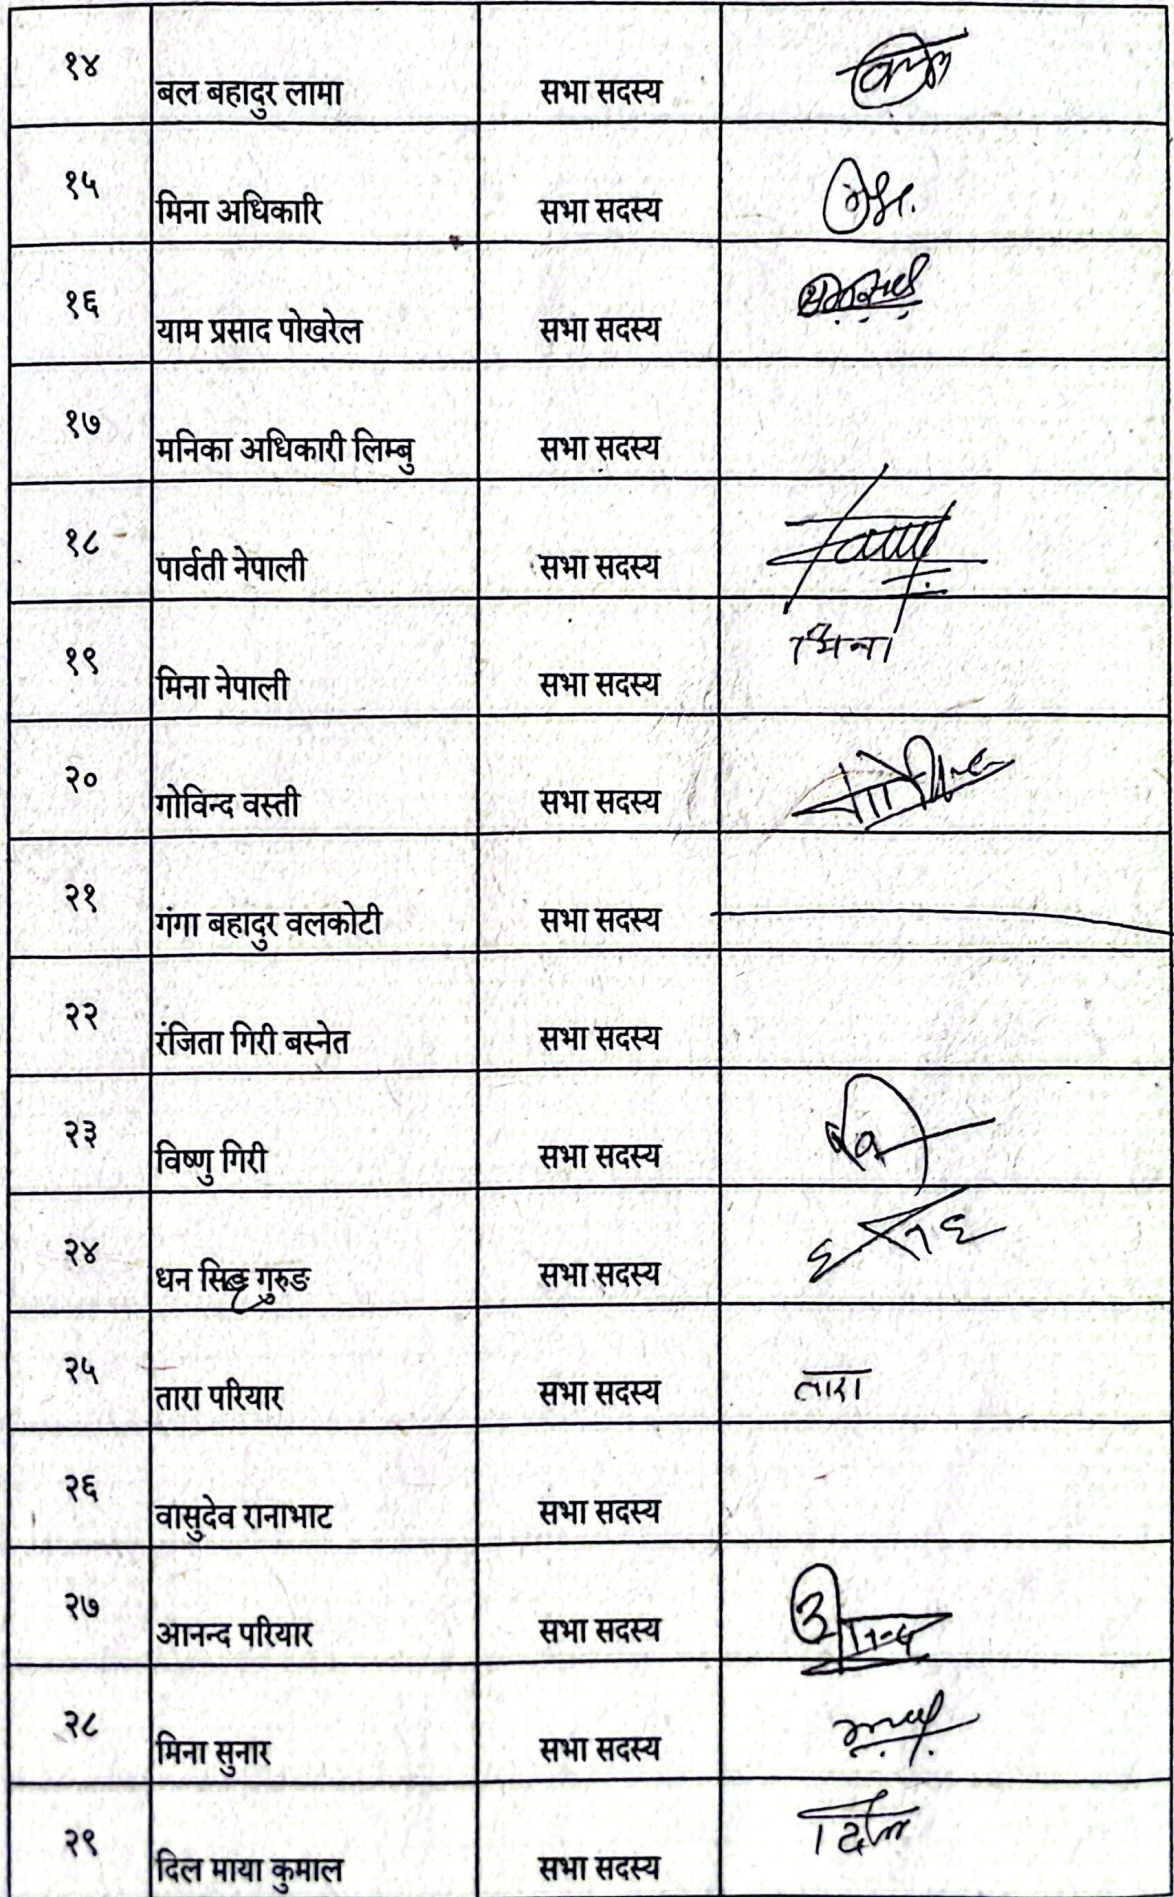 १४ बल बहादुर लामा सभा सदस्य
१५ मिना अधिकारि सभा सदस्य
१६ याम प्रसाद पोखरेल सभा सदस्य
१७ मनिका अधिकारी लिम्बु सभा सदस्य
१८ पार्वती नेपाली सभा सदस्य
१९ मिना नेपाली सभा सदस्य मिना
२० गोविन्द वस्ती सभा सदस्य
२१ गंगा बहादुर वलकोटी सभा सदस्य
२२ रंजिता गिरी बस्नेत सभा सदस्य
२३ विष्णु गिरी सभा सदस्य
२४ धन गुरुङ सभा सदस्य
२५ तारा परियार सभा सदस्य तारा
२६ वासुदेव रानाभाट सभा सदस्य
२७ आनन्द परियार सभा सदस्य आनन्द
२८ मिना सुनार सभा सदस्य
२९ दिल माया कुमाल सभा सदस्य दिल